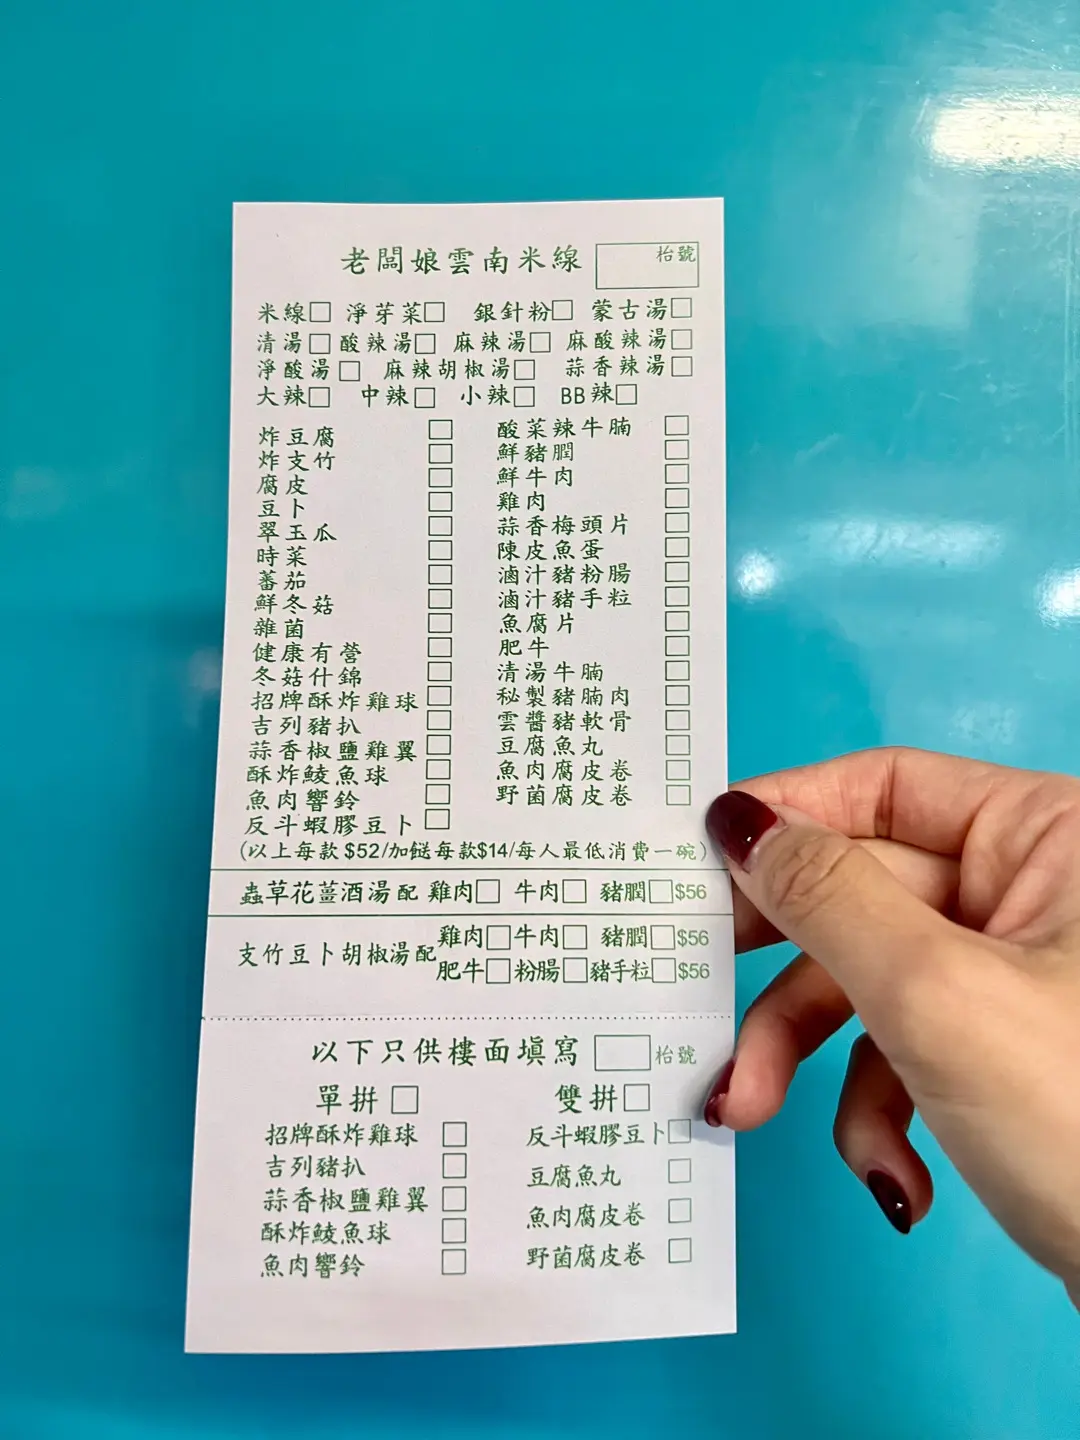 老闆娘雲南米線 枱號
米線□ 淨芽菜□ 銀針粉□ 蒙古湯□
清湯□ 酸辣湯□ 麻辣湯□ 麻酸辣湯□
淨酸湯□ 麻辣胡椒湯□ 蒜香辣湯□
大辣□ 中辣□ 小辣□ BB辣□
炸豆腐□
炸支竹□
腐皮□
豆卜□
翠玉瓜□
時菜□
蕃茄□
鮮冬菇□
雜菌□
健康有營□
冬菇什錦□
招牌酥炸雞球□
吉列豬扒□
蒜香椒鹽雞翼□
酥炸鯪魚球□
魚肉響鈴□
反斗蝦膠豆卜□
酸菜辣牛腩□
鮮豬膶□
鮮牛肉□
雞肉□
蒜香梅頭片□
陳皮魚蛋□
滷汁豬粉腸□
滷汁豬手粒□
魚腐片□
肥牛□
清湯牛腩□
秘製豬腩肉□
雲醬豬軟骨□
豆腐魚丸□
魚肉腐皮卷□
野菌腐皮卷□
(以上每款$52/加餸每款$14/每人最低消費一碗)
蟲草花薑酒湯配 雞肉□ 牛肉□ 豬膶□$56
支竹豆卜胡椒湯配
雞肉□牛肉□ 豬膶□$56
肥牛□粉腸□豬手粒□$56
以下只供樓面填寫 □枱號
單拼□
招牌酥炸雞球□
吉列豬扒□
蒜香椒鹽雞翼□
酥炸鯪魚球□
魚肉響鈴□
雙拼□
反斗蝦膠豆卜□
豆腐魚丸□
魚肉腐皮卷□
野菌腐皮卷□